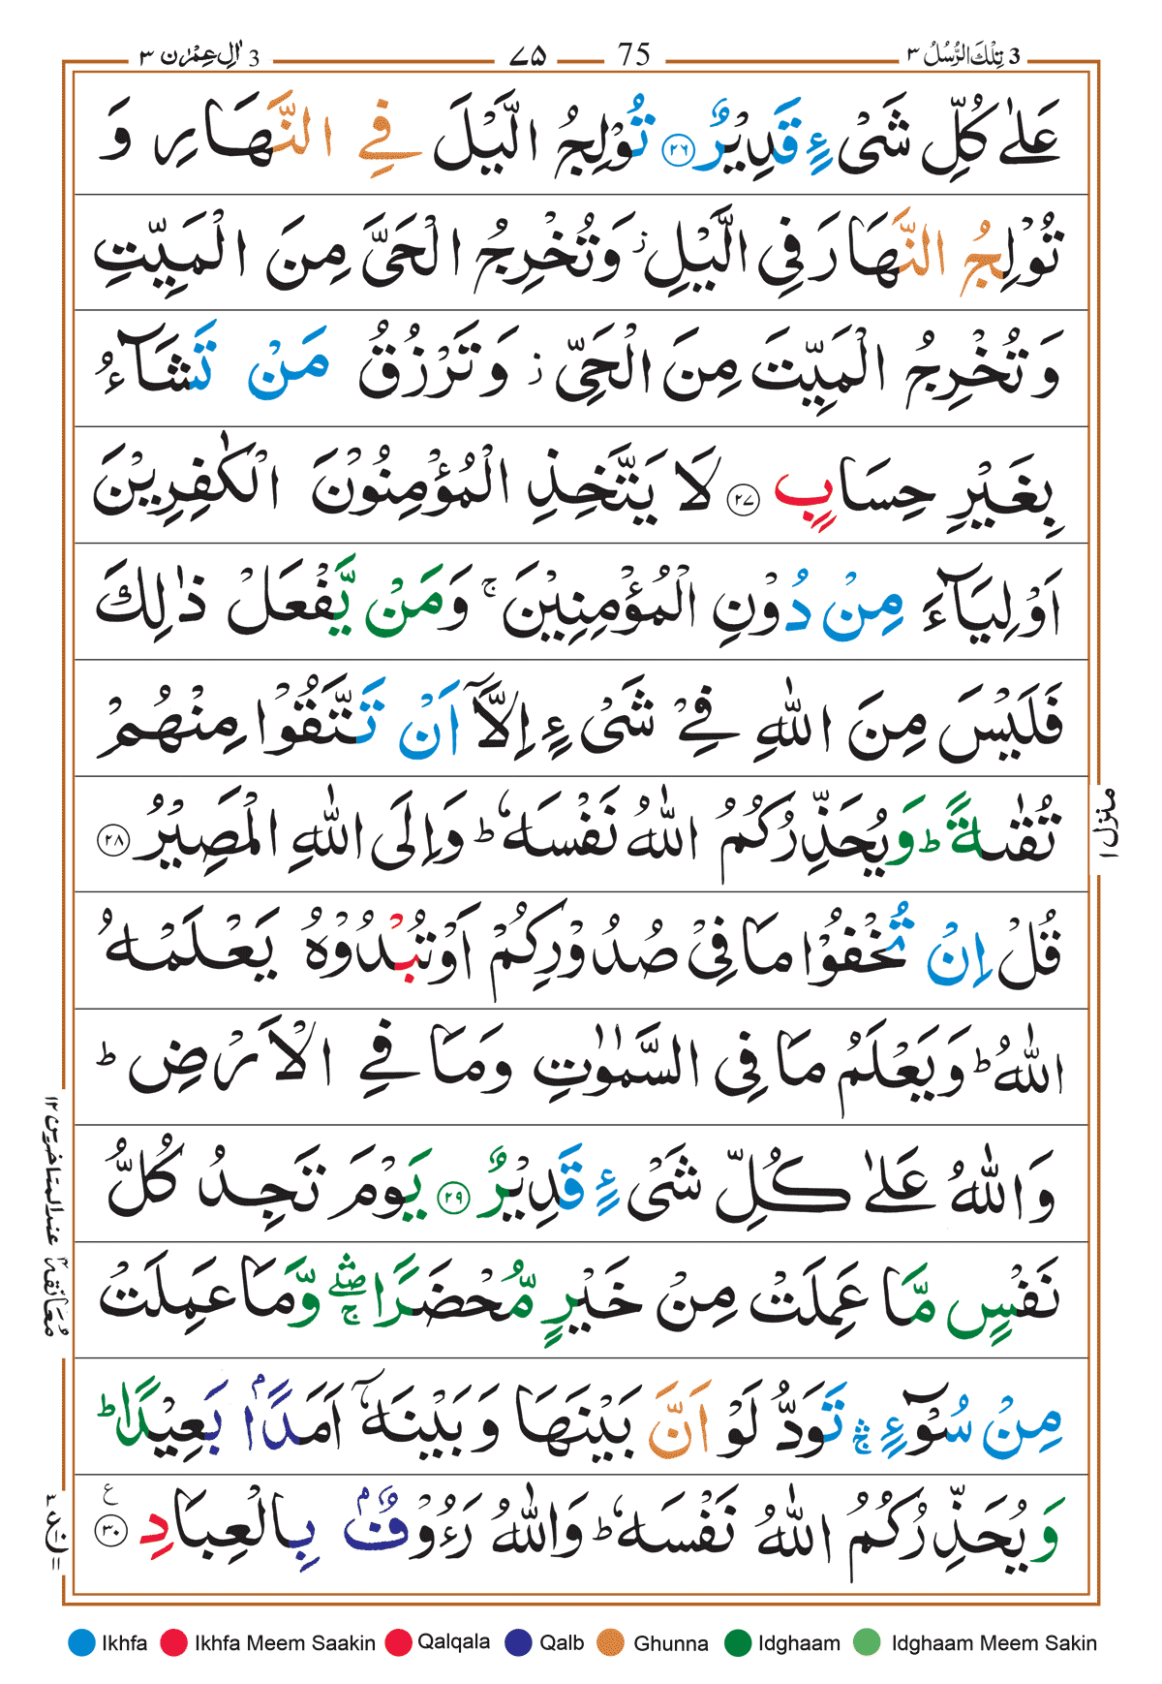 3 تِلْكَ الرُّسُلُ ٣ 75 ۷۵ 3 اٰلِ عِمْرٰن ٣
عَلٰى كُلِّ شَىْءٍ قَدِيْرٌ ۝۲۶ تُوْلِجُ الَّيْلَ فِي النَّهَارِ وَ
تُوْلِجُ النَّهَارَ فِى الَّيْلِ ز وَتُخْرِجُ الْحَىَّ مِنَ الْمَيِّتِ
وَتُخْرِجُ الْمَيِّتَ مِنَ الْحَىِّ ز وَتَرْزُقُ مَنْ تَشَآءُ
بِغَيْرِ حِسَابٍ ۝۲۷ لَا يَتَّخِذِ الْمُؤْمِنُوْنَ الْكٰفِرِيْنَ
اَوْلِيَآءَ مِنْ دُوْنِ الْمُؤْمِنِيْنَ ۚ وَمَنْ يَّفْعَلْ ذٰلِكَ
فَلَيْسَ مِنَ اللّٰهِ فِيْ شَىْءٍ اِلَّاۤ اَنْ تَتَّقُوْا مِنْهُمْ
تُقٰىةً ؕ وَيُحَذِّرُكُمُ اللّٰهُ نَفْسَهٗ ؕ وَاِلَى اللّٰهِ الْمَصِيْرُ ۝۲۸
قُلْ اِنْ تُخْفُوْا مَا فِىْ صُدُوْرِكُمْ اَوْ تُبْدُوْهُ يَعْلَمْهُ
اللّٰهُ ؕ وَيَعْلَمُ مَا فِى السَّمٰوٰتِ وَمَا فِي الْاَرْضِ ؕ
وَاللّٰهُ عَلٰى كُلِّ شَىْءٍ قَدِيْرٌ ۝۲۹ يَوْمَ تَجِدُ كُلُّ
نَفْسٍ مَّا عَمِلَتْ مِنْ خَيْرٍ مُّحْضَرًا ۛۖۚ وَّمَا عَمِلَتْ
مِنْ سُوْٓءٍ ۛۚ تَوَدُّ لَوْ اَنَّ بَيْنَهَا وَبَيْنَهٗۤ اَمَدًاۢ بَعِيْدًا ؕ
وَيُحَذِّرُكُمُ اللّٰهُ نَفْسَهٗ ؕ وَاللّٰهُ رَءُوْفٌۢ بِالْعِبَادِ ۝۳۰ ع
منزل ۱
مُعَانَقَة ۲ عند المتاخرين ۱۲
Ikhfa Ikhfa Meem Saakin Qalqala Qalb Ghunna Idghaam Idghaam Meem Sakin